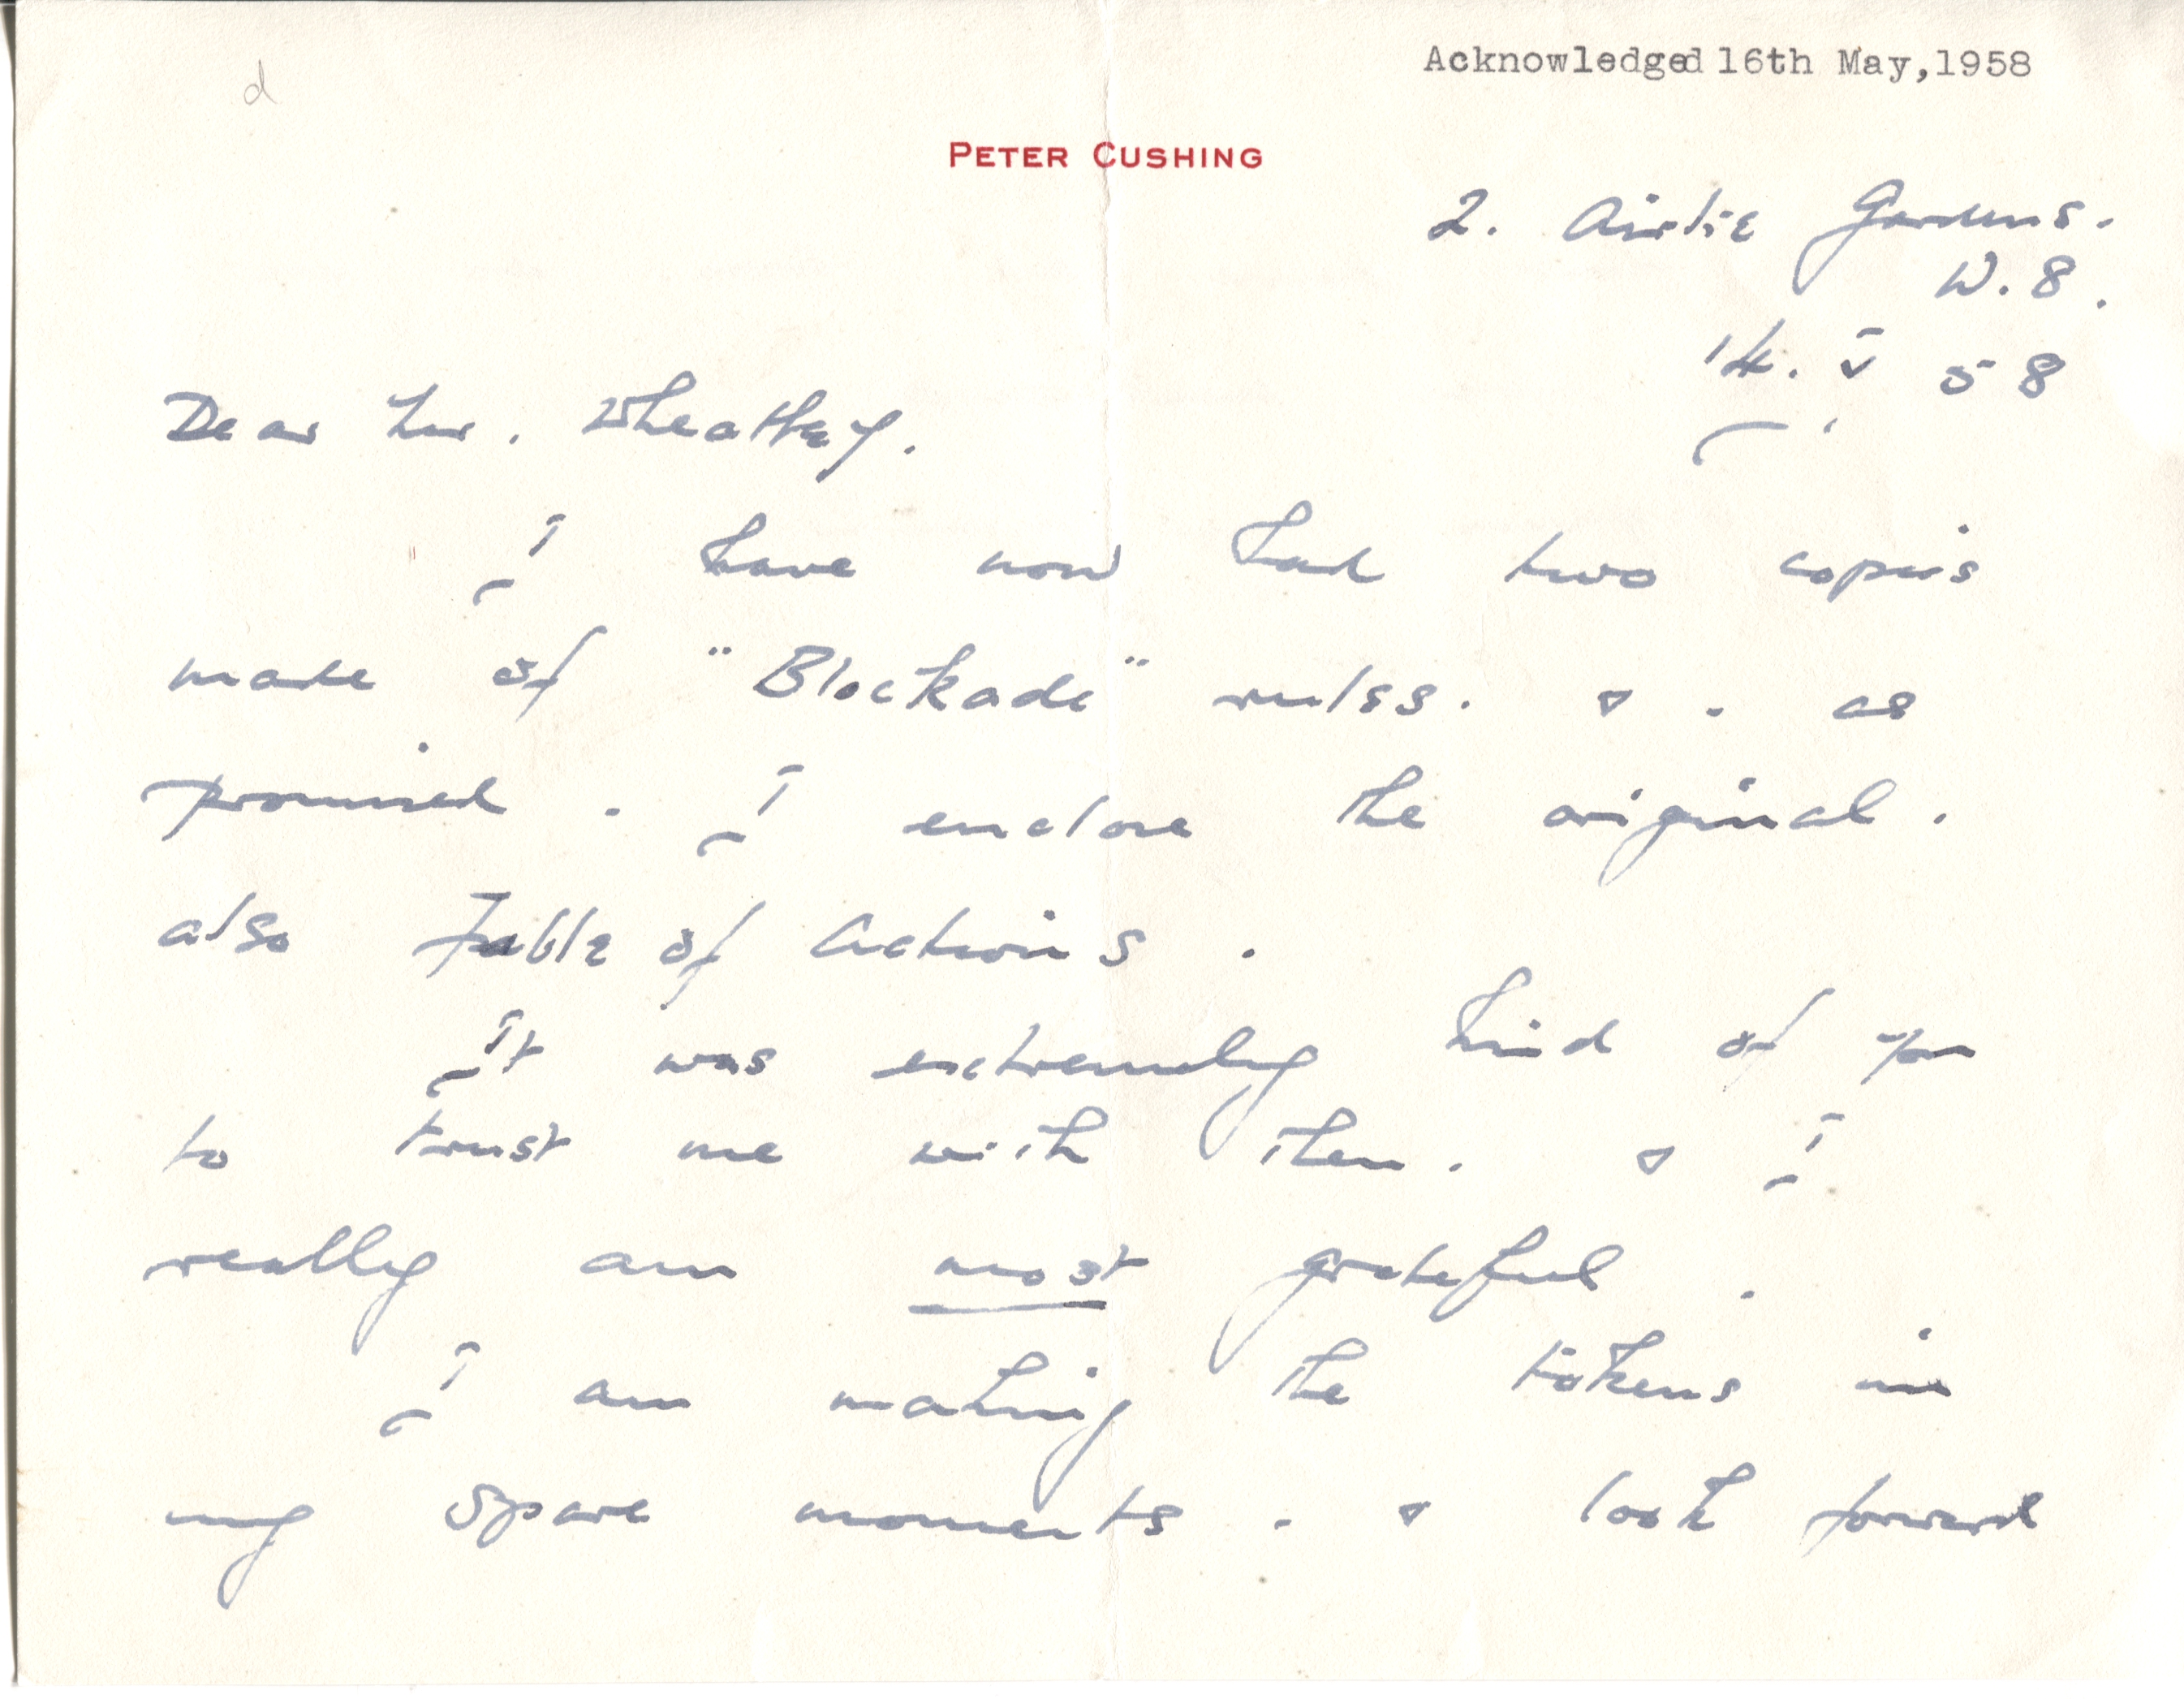 d
Acknowledged 16th May, 1958
PETER CUSHING
2. Airlie Gardens.
W.8.
14. V 58
Dear Mr. Wheatley.
I have now had two copies
made of "Blockade" rules. & . as
promised . I enclose the original .
also Table of Actions .
It was extremely kind of you
to trust me with them. & I
really am most grateful .
I am making the tokens in
my spare moments . & look forward